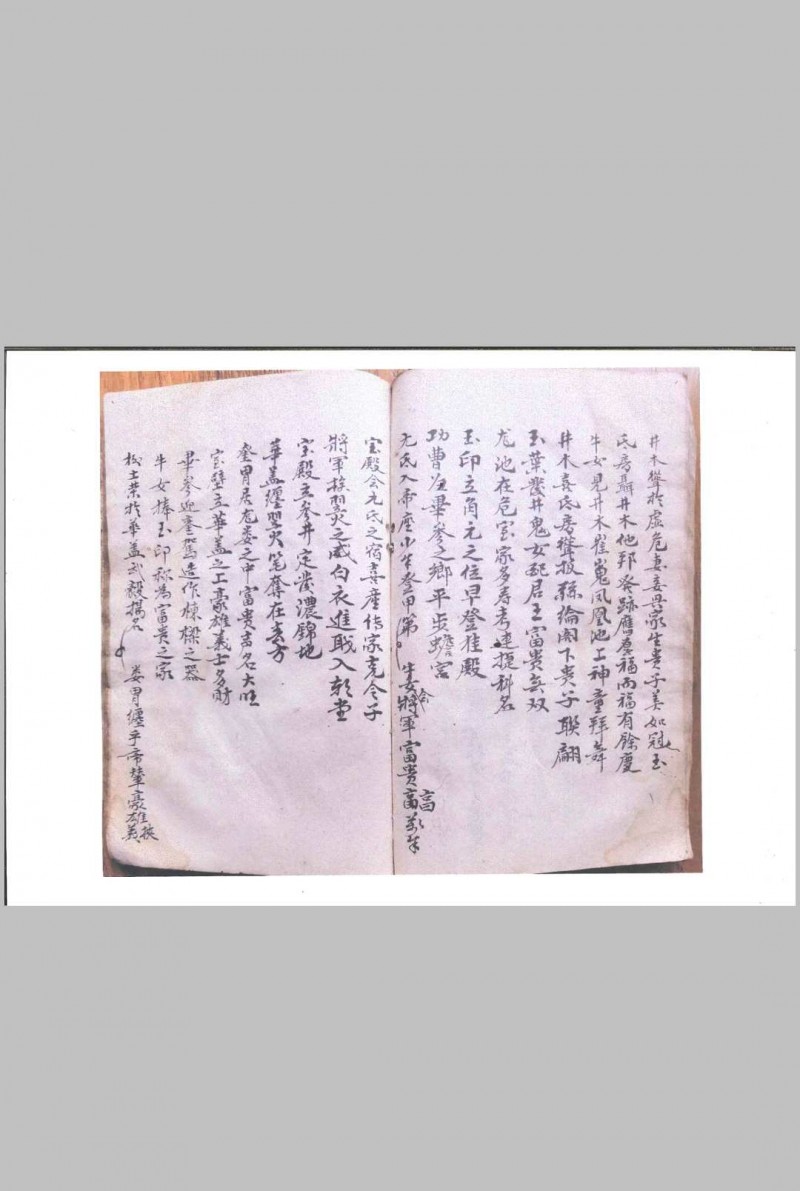 井木聳於虛危妻妾興家生貴子美如冠玉
氐房聶井木他邦發跡應臺福而福有餘慶
牛女見井木崔嵬鳳凰池上神童拜舞
井木喜氐房聳拔絲綸閣下貴子聯翩
玉葉發井鬼女起居王富貴無双
龙池在危室家多寿考連捷科名
玉印立角亢之位早登桂殿
功曹居畢參之鄉平步蟾宮
亢氐入帝座少年登甲第 牛女会將軍富貴富萬年
宝殿会亢氐之宿喜產傳家克令子
將軍挨翌火之威白衣進職入朝堂
宝殿立參井定發濃錦地
華盖纏翌火笔奪在玄方
奎胃居龙娄之中富貴声名大旺
室壁立華盖之上豪雄義士多財
畢參迎奎駕造作棟樑之器
牛女捧玉印称為富貴之家
機士業於華盖武毅揚名 娄胃纏乎帝輦豪雄俠義